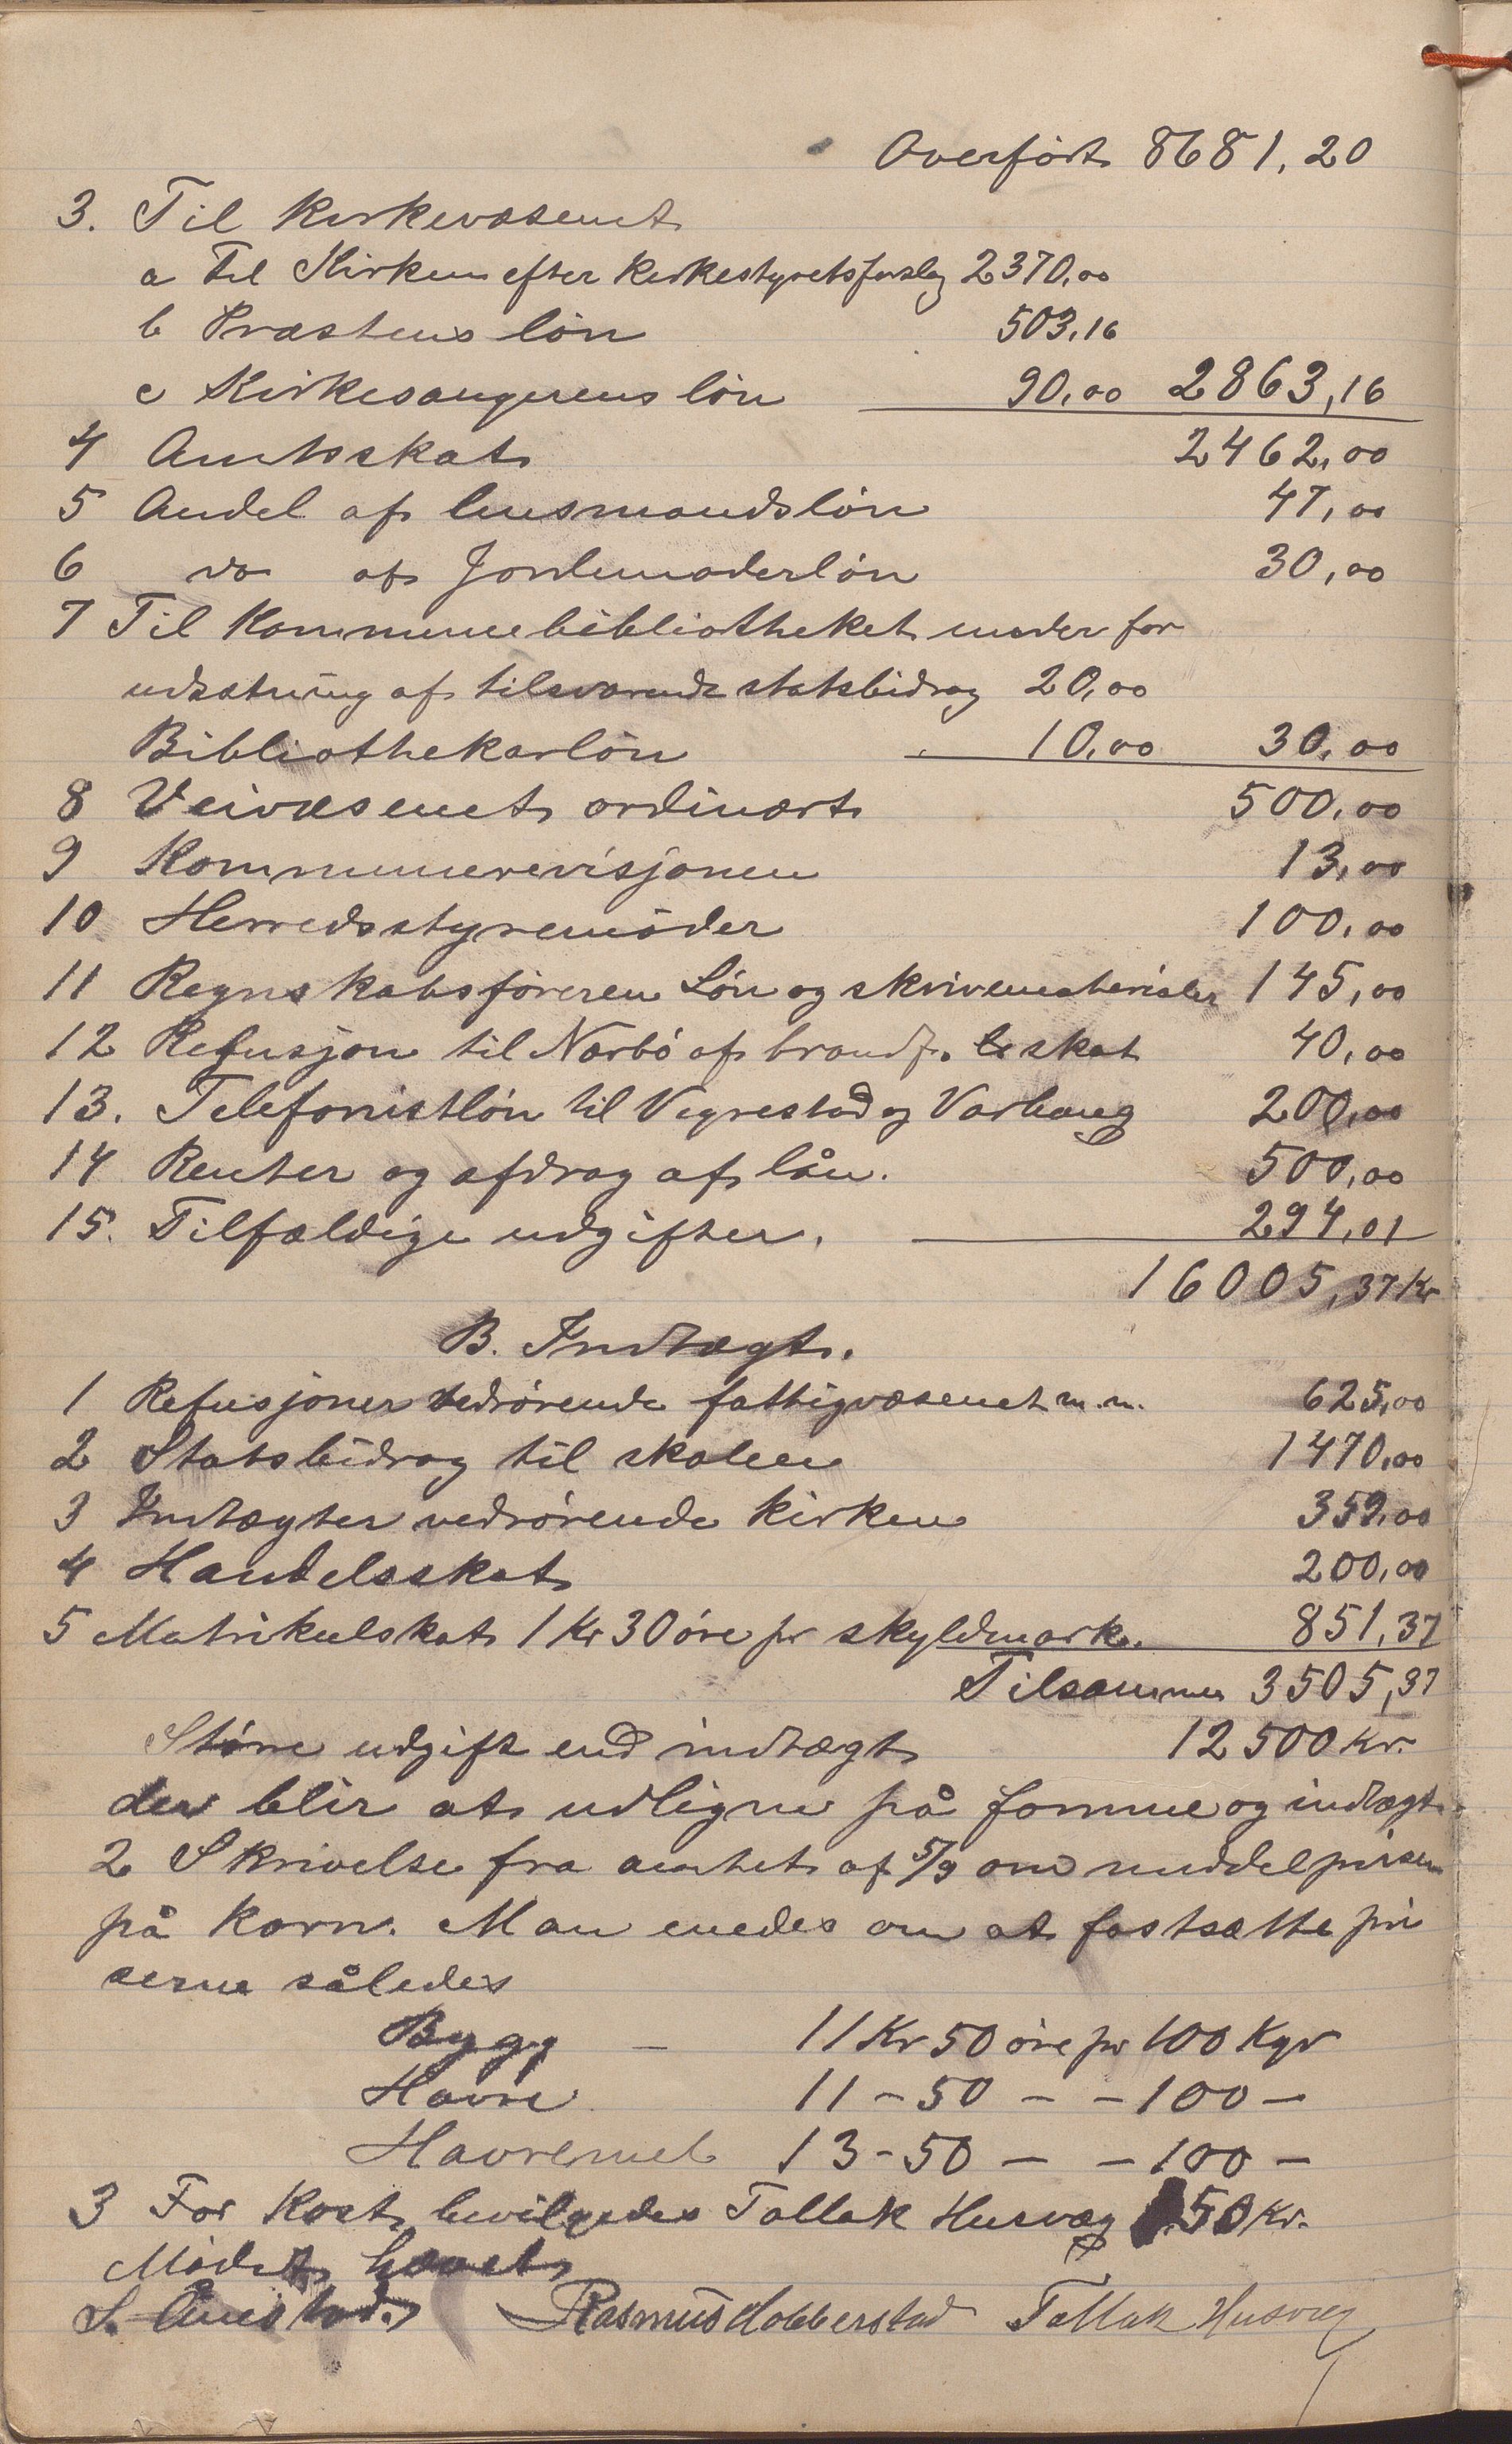 Overført 8681,20
3. Til Kirkevæsenet
a Til Kirken efter Kirkestyretsforslag 2370,00
b Præstens løn 503,16
c Kirkesangerens løn 90,00 2863,16
4 Amtsskat 2462,00
5 Andel af lensmandsløn 47,00
6 do af Jordemoderløn 30,00
7 Til Kommunebibliotheket under for
udsætning af tilsvarende statsbidrag 20,00
Bibliothekarløn 10,00 30,00
8 Veivæsenet ordinært 500,00
9 Kommunerevisjonen 13,00
10 Herredsstyremøder 100,00
11 Regnskabsføreren Løn og skrivematerialer 145,00
12 Refusjon til Nærbø af brandf. skat 40,00
13. Telefonistløn til Vigrestad og Varhaug 200,00
14 Renter og afdrag af lån. 500,00
15. Tilfældige udgifter. 294,01
16005,37 Kr
B. Indtægt.
1 Refusjoner vedrørende fattigvæsenet m.m. 625,00
2 Statsbidrag til skolen 1470,00
3 Indtægter vedrørende kirken 359,00
4 Handelsskat 200,00
5 Matrikulskat 1 Kr 30 øre pr skyldmark. 851,37
Tilsammen 3505,37
Større udgift end indtægt 12500 Kr.
der blir at udligne på formue og indtægt.
2 Skrivelse fra amtet af 5/9 om middelprisen
på korn. Man enedes om at fastsætte pri
serne således
Bygg - 11 Kr 50 øre pr 100 Kgr
Havre 11 - 50 - - 100 -
Havremel 13 - 50 - - 100 -
3 For Kost bevilgedes Tollak Husvæg 50 Kr.
Mødet hævet
S. Ånestad. Rasmus Hobberstad Tollak Husvæg